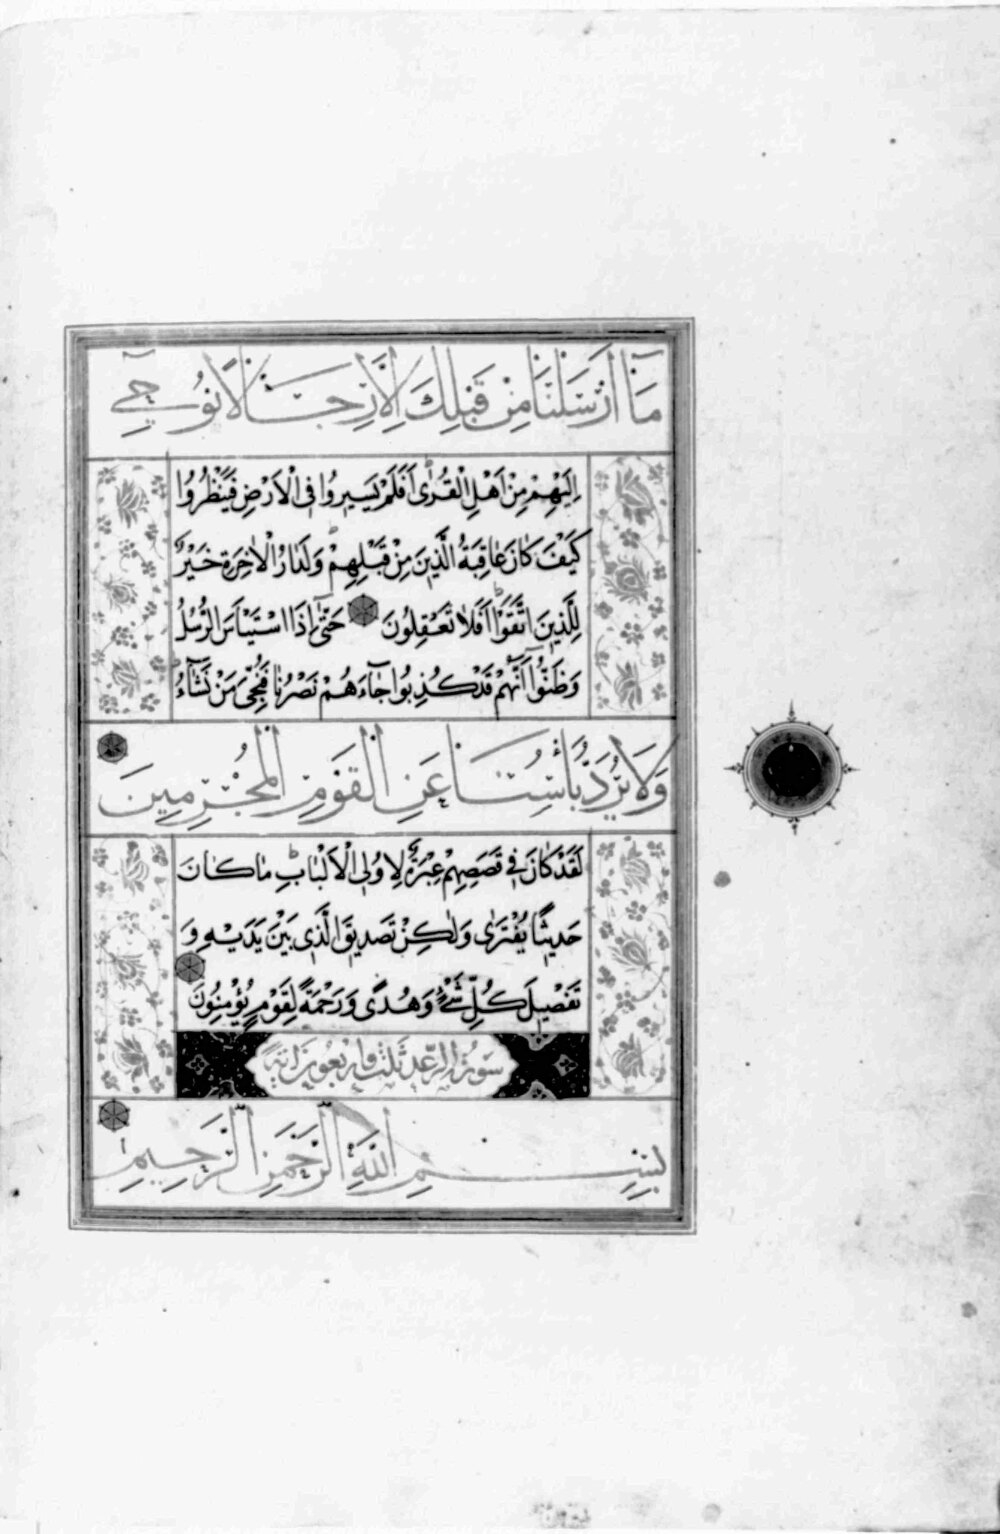 مَآ اَرْسَلْنَا مِنْ قَبْلِكَ اِلَّا رِجَالًا نُوحٖٓي
اِلَيْهِمْ مِنْ اَهْلِ الْقُرٰى اَفَلَمْ يَسٖيرُوا فِى الْاَرْضِ فَيَنْظُرُوا
كَيْفَ كَانَ عَاقِبَةُ الَّذٖينَ مِنْ قَبْلِهِمْ وَلَدَارُ الْاٰخِرَةِ خَيْرٌ
لِلَّذٖينَ اتَّقَوْا اَفَلَا تَعْقِلُونَ حَتّٰٓى اِذَا اسْتَيْـَٔسَ الرُّسُلُ
وَظَنُّٓوا اَنَّهُمْ قَدْ كُذِبُوا جَٓاءَهُمْ نَصْرُنَا فَنُجِّىَ مَنْ نَشَٓاءُ
وَلَا يُرَدُّ بَأْسُنَا عَنِ الْقَوْمِ الْمُجْرِمٖينَ
لَقَدْ كَانَ فٖى قَصَصِهِمْ عِبْرَةٌ لِاُولِى الْاَلْبَابِ مَا كَانَ
حَدٖيثًا يُفْتَرٰى وَلٰكِنْ تَصْدٖيقَ الَّذٖى بَيْنَ يَدَيْهِ وَ
تَفْصٖيلَ كُلِّ شَىْءٍ وَهُدًى وَرَحْمَةً لِقَوْمٍ يُؤْمِنُونَ
سورة الرعد ثلث واربعون اية
بِسْمِ اللّٰهِ الرَّحْمٰنِ الرَّحٖيمِ